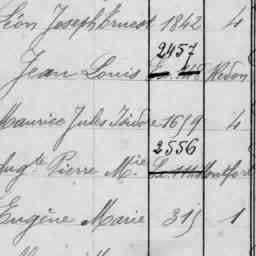 Léon Joseph Ernest 1842 4
2457
Jean Louis Redon
Maurice Jules Isidore 1659 4
2556
Aug.te Pierre M.ie Montfort
Eugène Marie 315 1